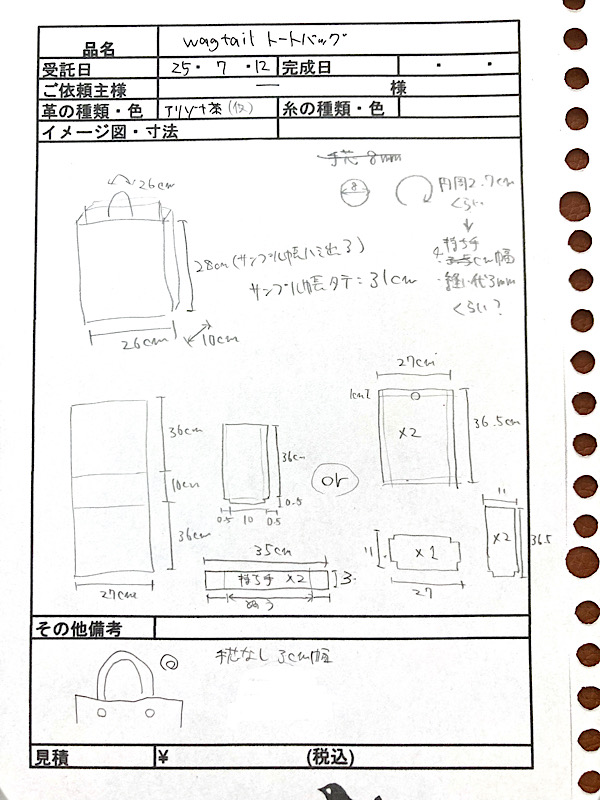 品名 wagtail トートバッグ
受託日 25・7・12 完成日 ・ ・
ご依頼主様 ー 様
革の種類・色 アリゾナ茶(仮) 糸の種類・色
イメージ図・寸法
手芯 8mm
26cm
8
円周2.7cm
くらい
持ち手
4cm幅
・縫い代3mm
くらい?
28cm(サンプル帳ハミ出る)
サンプル帳タテ:31cm
26cm
10cm
36cm
10cm
36cm
27cm
36cm
0.5
0.5 10 0.5
or
27cm
1cm
36.5cm
×2
11
×1
27
11
×2
36.5
35cm
持ち手 ×2
3
ぬう
その他備考
手芯なし 3cm幅
見積 ¥ (税込)